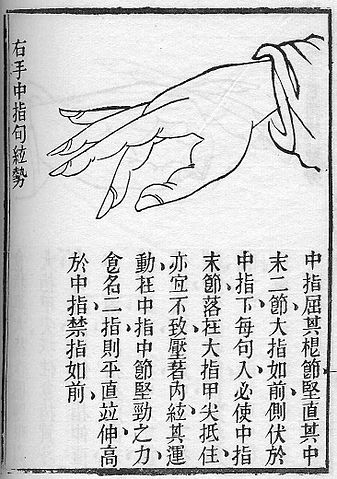 右手中指句絃勢
中指屈其根節、堅直其中
末二節、大指如前側伏於
中指下、每句入、必使中指
末節落在大指甲尖抵住、
亦宜不致壓著內絃、其運
動在中指中節堅勁之力、
食名二指、則平直竝伸、高
於中指、禁指如前、